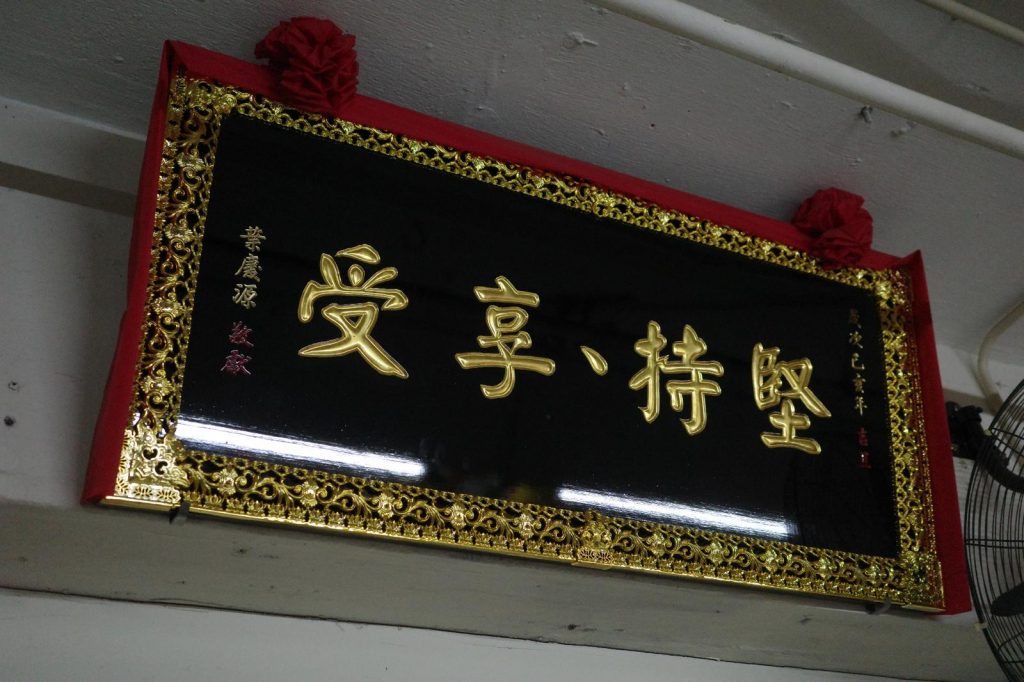 歲次己亥年 吉立
堅持、享受
葉慶源 敬獻